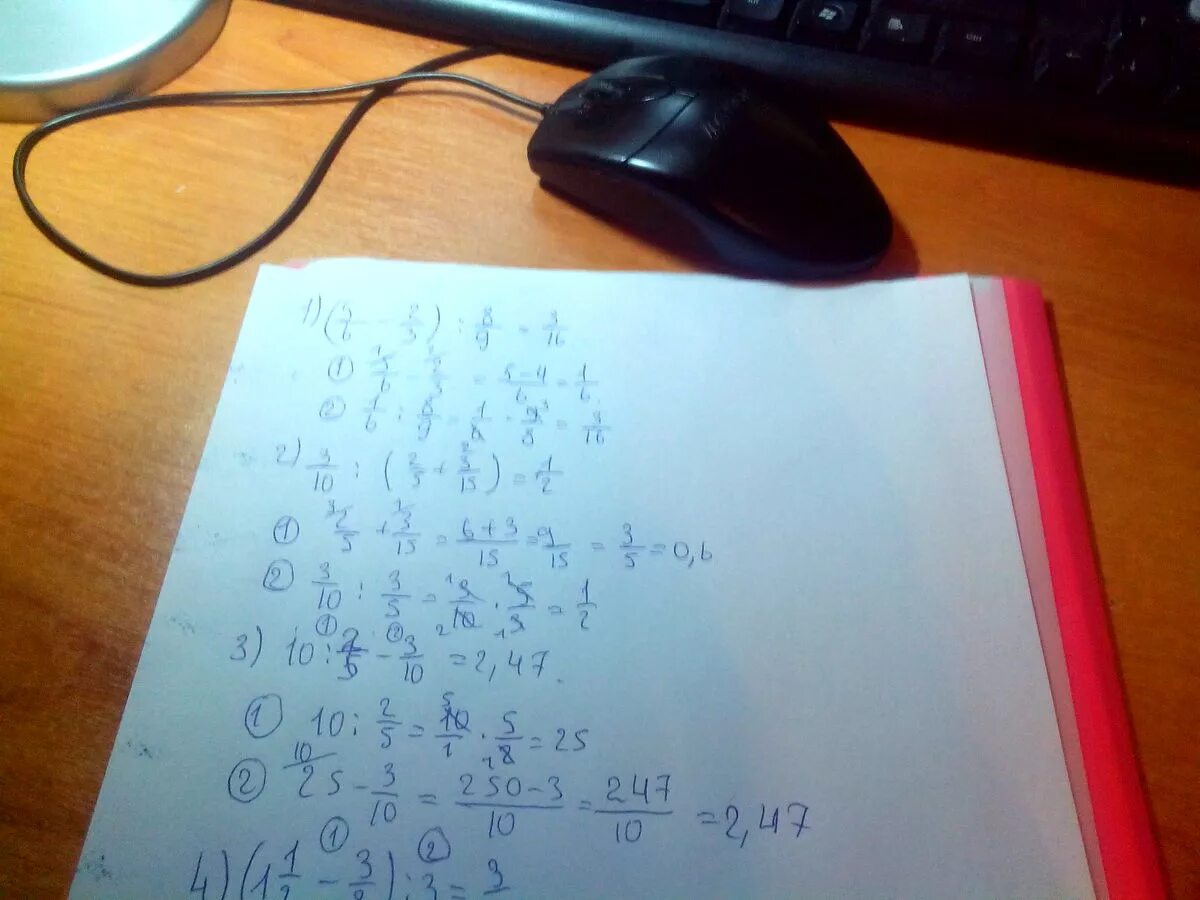 1) (5/6 - 2/3) : 8/9 = 3/16
① 5/6 - 2/3 = 5-4/6 = 1/6
② 1/6 : 8/9 = 1/6 · 9/8 = 3/16
2) 3/10 : (2/5 + 3/15) = 1/2
① 2/5 + 3/15 = 6+3/15 = 9/15 = 3/5 = 0,6
② 3/10 : 3/5 = 3/10 · 5/3 = 1/2
3) 10 : 2/5 - 3/10 = 2,47
① 10 : 2/5 = 10/1 · 5/2 = 25
② 25 - 3/10 = 250-3/10 = 247/10 = 2,47
4) (1 1/2 - 3/8) : 3 = 3